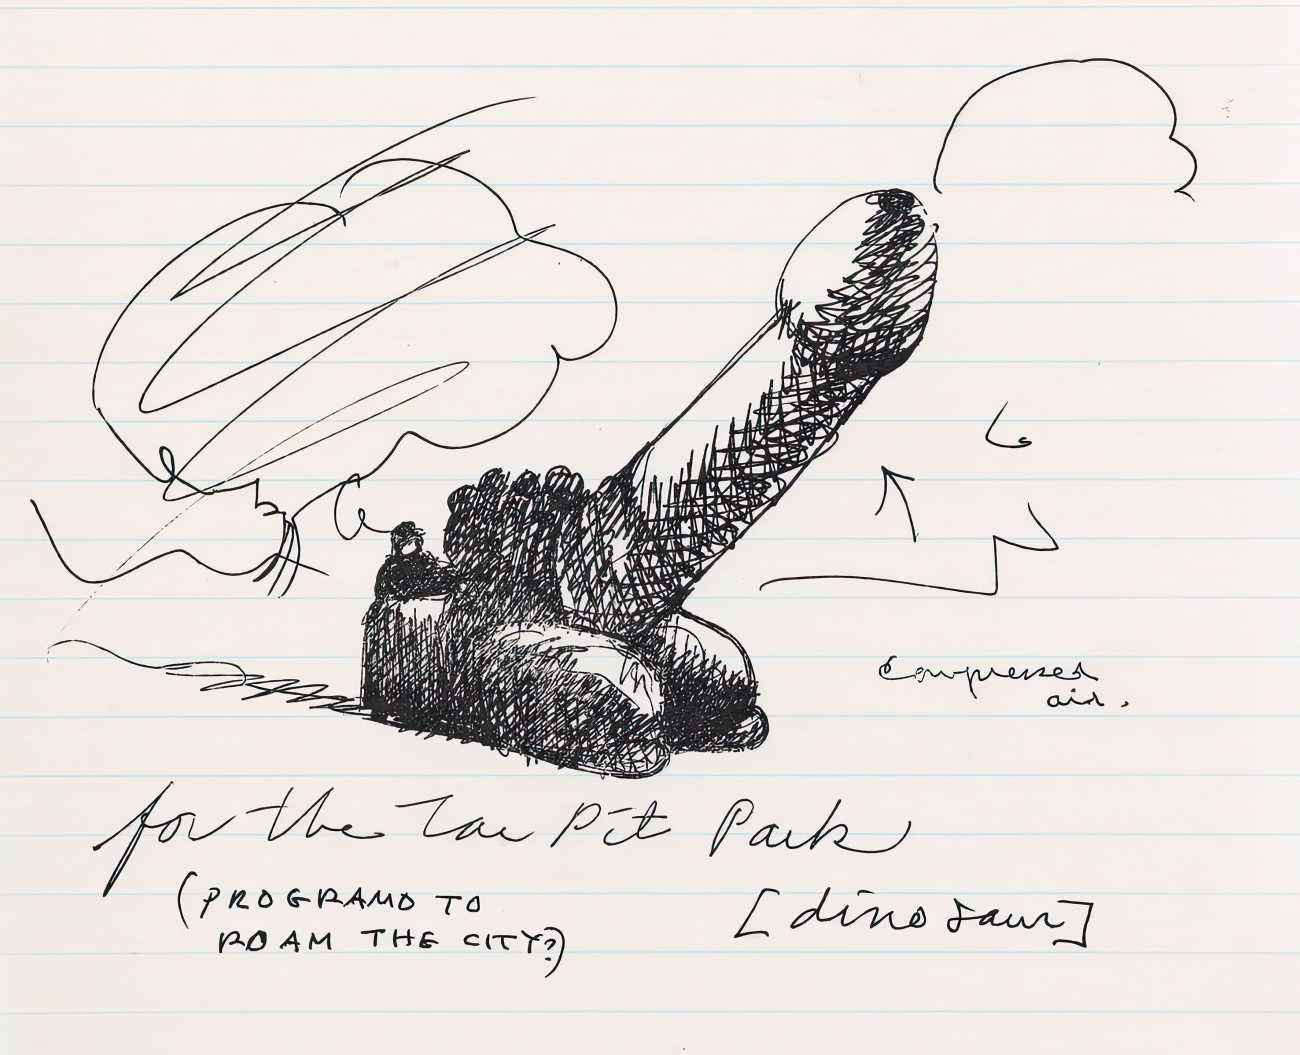 Compressed
air.
for the Tar Pit Park
(PROGRAMD TO
ROAM THE CITY?)
[dinosaur]